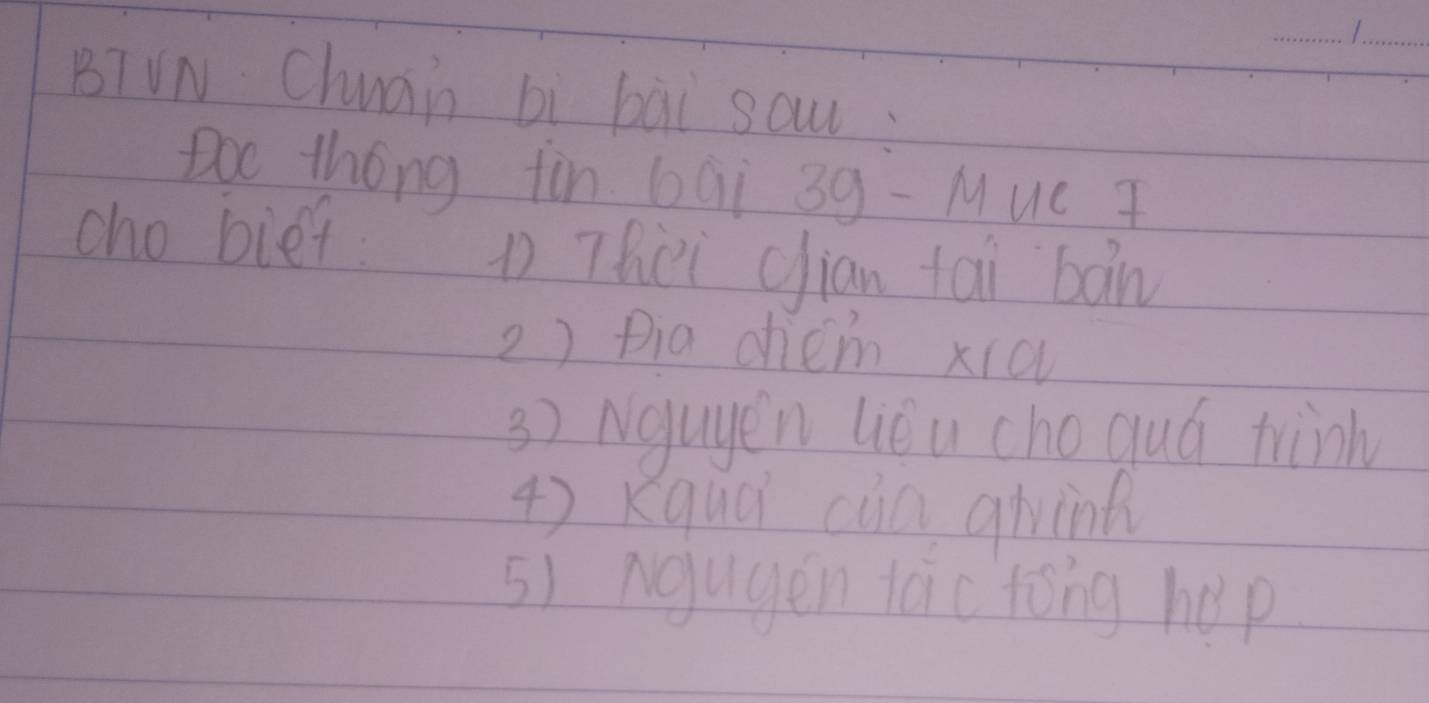 BTVN. Chuẩn bị bài sau:
Đọc thông tin bài 39 - Mục I
cho biết: 1) Thời gian tái bản
2) Địa điểm xra
3) Nguyên liệu cho quá trình
4) Kquả của qtrình
5) Nguyên tắc tổng hợp.